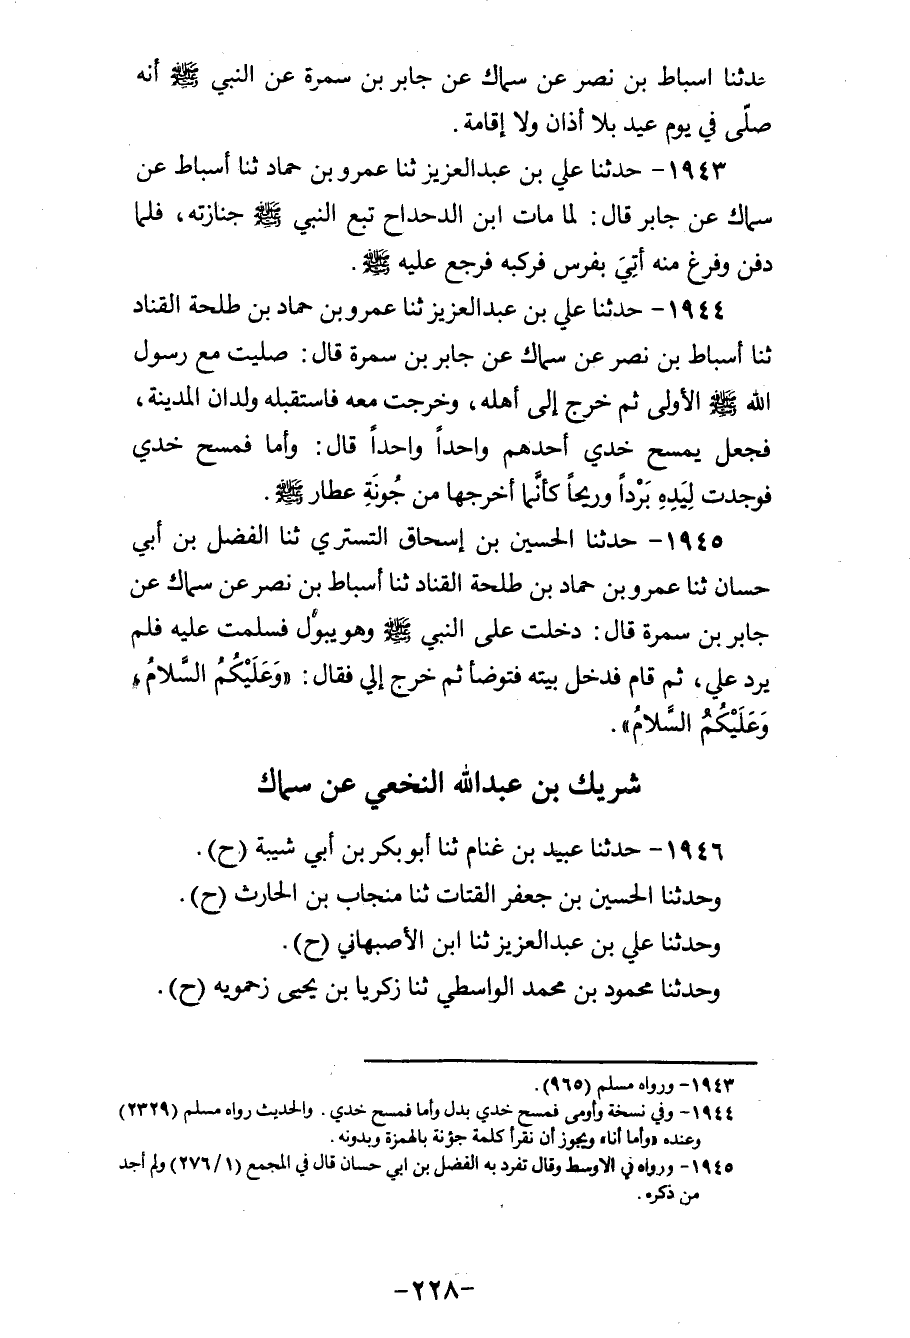 حدثنا اسباط بن نصر عن سماك عن جابر بن سمرة عن النبي ﷺ أنه
صلّى في يوم عيد بلا أذان ولا إقامة.
١٩٤٣- حدثنا علي بن عبدالعزيز ثنا عمرو بن حماد ثنا أسباط عن
سماك عن جابر قال: لما مات ابن الدحداح تبع النبي ﷺ جنازته، فلما
دفن وفرغ منه أتِيَ بفرس فركبه فرجع عليه ﷺ.
١٩٤٤- حدثنا علي بن عبدالعزيز ثنا عمرو بن حماد بن طلحة القناد
ثنا أسباط بن نصر عن سماك عن جابر بن سمرة قال: صليت مع رسول
الله ﷺ الأولى ثم خرج إلى أهله، وخرجت معه فاستقبله ولدان المدينة،
فجعل يمسح خدي أحدهم واحداً واحداً قال: وأما فمسح خدي
فوجدت لِيَدِهِ بَرْداً وريحاً كأنَّما أخرجها من جُونَةِ عطار ﷺ.
١٩٤٥- حدثنا الحسين بن إسحاق التستري ثنا الفضل بن أبي
حسان ثنا عمرو بن حماد بن طلحة القناد ثنا أسباط بن نصر عن سماك عن
جابر بن سمرة قال: دخلت على النبي ﷺ وهو يبول فسلمت عليه فلم
يرد علي، ثم قام فدخل بيته فتوضأ ثم خرج إلي فقال: «وَعَلَيْكُمُ السَّلامُ،
وَعَلَيْكُمُ السَّلامُ».
شريك بن عبدالله النخعي عن سماك
١٩٤٦- حدثنا عبيد بن غنام ثنا أبو بكر بن أبي شيبة (ح).
وحدثنا الحسين بن جعفر القتات ثنا منجاب بن الحارث (ح).
وحدثنا علي بن عبدالعزيز ثنا ابن الأصبهاني (ح).
وحدثنا محمود بن محمد الواسطي ثنا زكريا بن يحيى زحمويه (ح).
١٩٤٣- ورواه مسلم (٩٦٥).
١٩٤٤- وفي نسخة وأومى فمسح خدي بدل وأما فمسح خدي. والحديث رواه مسلم (٢٣٢٩)
وعنده «وأما أنا» ويجوز أن نقرأ كلمة جؤنة بالهمزة وبدونه.
١٩٤٥- ورواه في الاوسط وقال تفرد به الفضل بن ابي حسان قال في المجمع (٢٧٦/١) ولم أجد
من ذكره.
-٢٢٨-